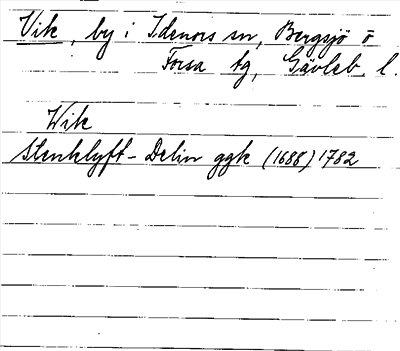 Vik, by i Idenors sn, Bergsjö o
Forsa tg, Gävleb. l.
Wik
Stenklyft-Delin ggk (1688) 1782